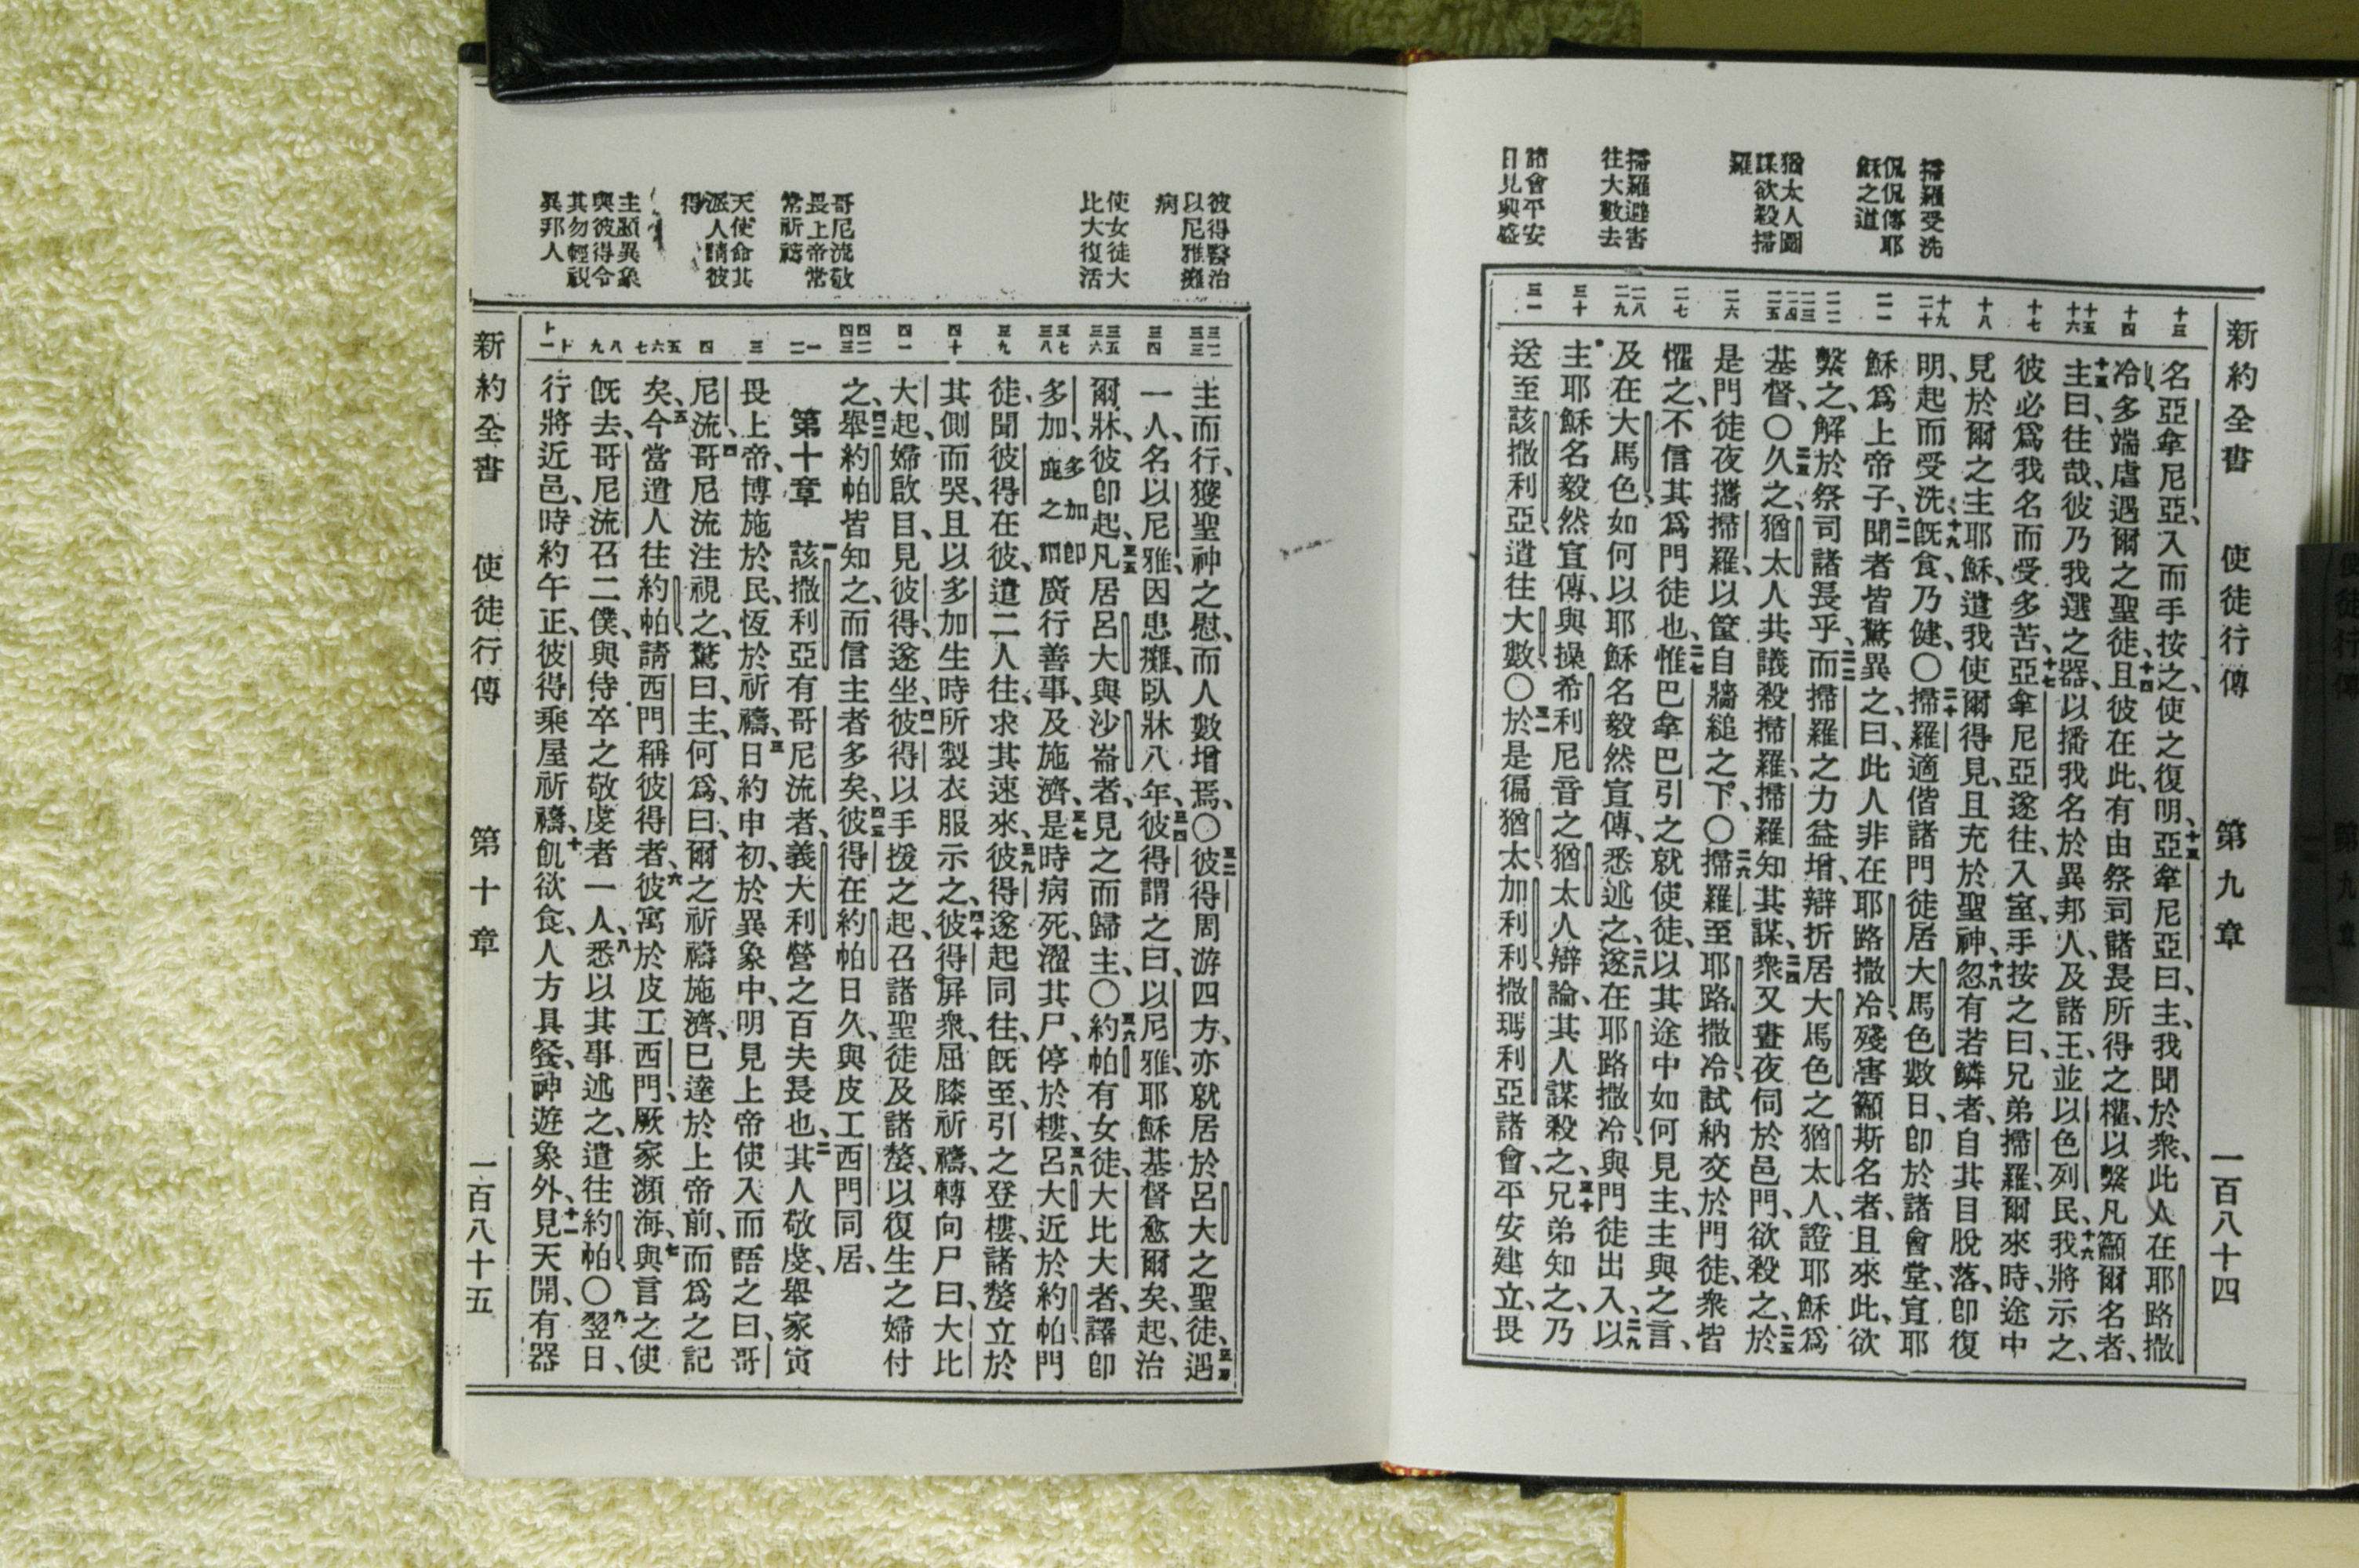 新約全書　使徒行傳　第九章　一百八十四
掃羅受洗
侃侃傳耶
穌之道
猶太人圖
謀欲殺掃
羅
掃羅避害
往大數去
諸會平安
日見興盛
十三
十四
十五
十六
十七
十八
十九
二十
二一
二二
二三
二四
二五
二六
二七
二八
二九
三十
三一
名亞拿尼亞、入而手按之、使之復明、十三亞拿尼亞曰、主、我聞於衆、此人在耶路撒
冷、多端虐遇爾之聖徒、十四且彼在此、有由祭司諸長所得之權、以繫凡籲爾名者、
十五主曰、往哉、彼乃我選之器、以播我名於異邦人、及諸王、並以色列民、十六我將示之、
彼必爲我名而受多苦、十七亞拿尼亞遂往、入室、手按之曰、兄弟掃羅、爾來時、途中
見於爾之主耶穌、遣我使爾得見、且充於聖神、十八忽有若鱗者、自其目脫落、卽復
明、起而受洗、十九旣食、乃健、〇二十掃羅適偕諸門徒居大馬色數日、卽於諸會堂、宣耶
穌爲上帝子、二一聞者皆驚異之、曰、此人非在耶路撒冷、殘害籲斯名者、且來此、欲
繫之、解於祭司諸長乎、二二而掃羅之力益增、辯折居大馬色之猶太人、證耶穌爲
基督、〇二三久之、猶太人共議殺掃羅、掃羅知其謀、二四衆又晝夜伺於邑門、欲殺之、二五於
是門徒夜攜掃羅、以筐自牆縋之下、〇二六掃羅至耶路撒冷、試納交於門徒、衆皆
懼之、不信其爲門徒也、二七惟巴拿巴引之就使徒、以其途中如何見主、主與之言、
及在大馬色、如何以耶穌名毅然宣傳、悉述之、二八遂在耶路撒冷、與門徒出入、二九以
主耶穌名毅然宣傳、與操希利尼音之猶太人辯論、其人謀殺之、三十兄弟知之、乃
送至該撒利亞、遣往大數、〇三一於是徧猶太、加利利、撒瑪利亞、諸會、平安建立、畏
彼得醫治
以尼雅癱
病
使女徒大
比大復活
哥尼流敬
畏上帝常
常祈禱
天使命其
派人請彼
得
主顯異象
與彼得令
其勿輕視
異邦人
三二
三三
三四
三五
三六
三七
三八
三九
四十
四一
四二
四三
一
二
三
四
五
六
七
八
九
十
十一
主而行、獲聖神之慰、而人數增焉、〇三二彼得周游四方、亦就居於呂大之聖徒、三三遇
一人、名以尼雅、因患癱、臥牀八年、三四彼得謂之曰、以尼雅、耶穌基督愈爾矣、起、治
爾牀、彼卽起、三五凡居呂大與沙崙者、見之而歸主、〇三六約帕有女徒、大比大者、譯卽
多加、多加卽鹿之謂廣行善事、及施濟、三七是時病死、濯其尸、停於樓、三八呂大近於約帕、門
徒聞彼得在彼、遣二人往、求其速來、三九彼得遂起同往、旣至、引之登樓、諸嫠立於
其側而哭、且以多加生時所製衣服示之、四十彼得屏衆、屈膝祈禱、轉向尸曰、大比
大起、婦啟目、見彼得、遂坐、四一彼得以手援之起、召諸聖徒及諸嫠、以復生之婦付
之、四二舉約帕皆知之、而信主者多矣、四三彼得在約帕日久、與皮工西門同居、
第十章　一該撒利亞有哥尼流者、義大利營之百夫長也、二其人敬虔、舉家寅
畏上帝、博施於民、恆於祈禱、三日約申初、於異象中、明見上帝使入而語之曰、哥
尼流、四哥尼流注視之、驚曰、主、何爲、曰、爾之祈禱施濟、已達於上帝前、而爲之記
矣、五今當遣人往約帕、請西門稱彼得者、六彼寓於皮工西門、厥家瀕海、七與言之使
旣去、哥尼流召二僕、與侍卒之敬虔者一人、八悉以其事述之、遣往約帕、〇九翌日、
行將近邑、時約午正、彼得乘屋祈禱、十飢欲食、人方具餐、神遊象外、十一見天開、有器
新約全書　使徒行傳　第十章　一百八十五